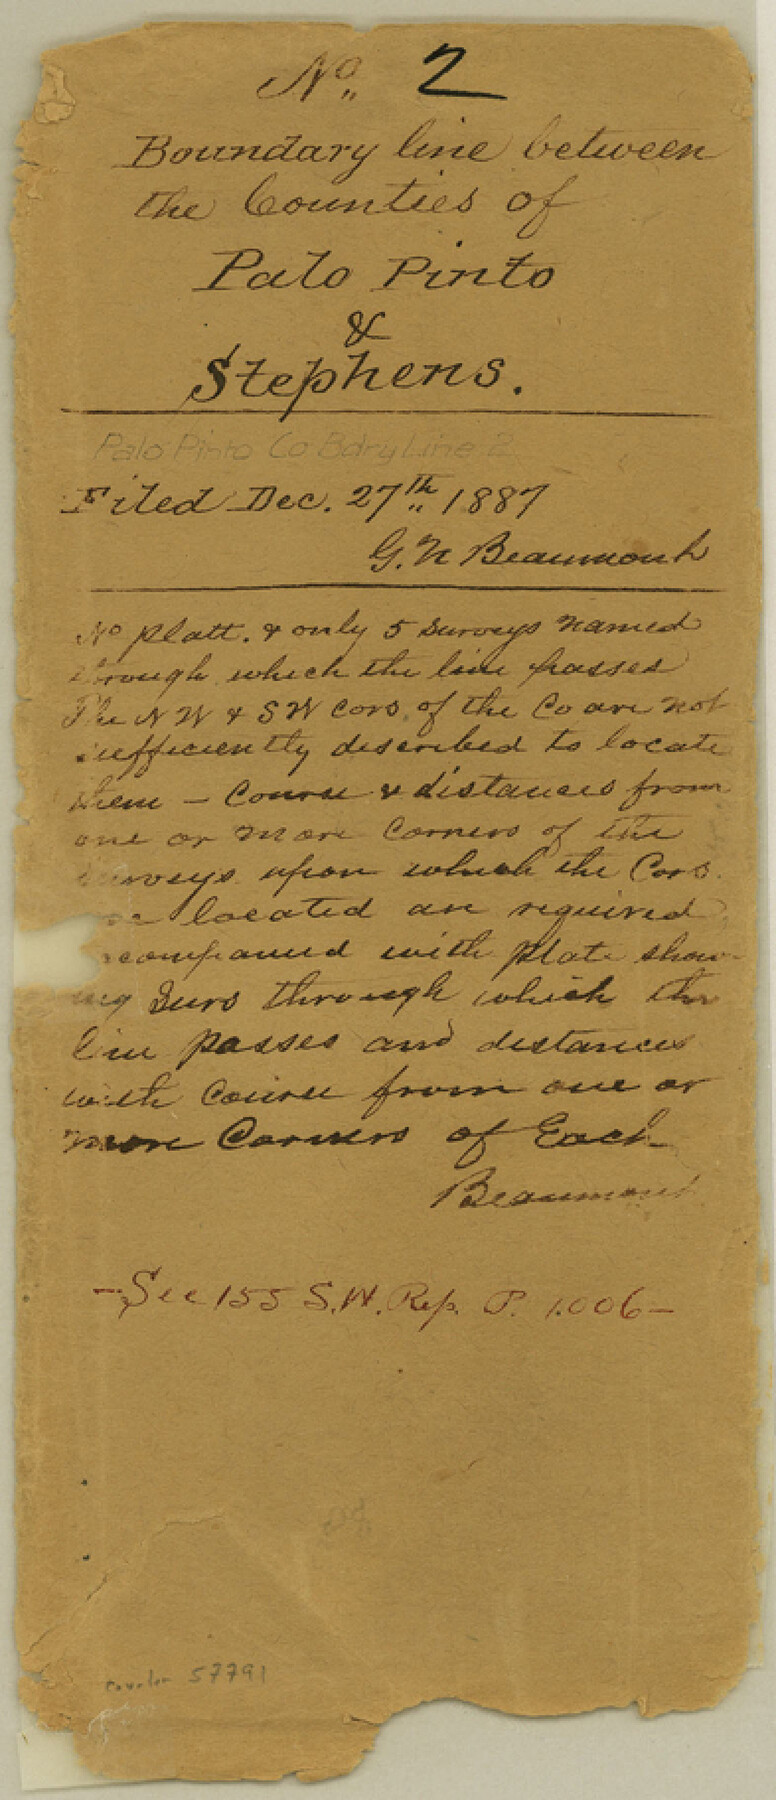 No. 2
Boundary line between
the Counties of
Palo Pinto
&
Stephens.
Palo Pinto Co Bdry Line 2
Filed Dec. 27th 1887
G. N Beaumont
No platt. & only 5 surveys named
through which the line passes
The N W & S W cors. of the Co are not
sufficiently described to locate
them - Course & distances from
one or more Corners of the
surveys upon which the Cors.
are located are required
accompanied with plate show-
ing Surs through which the
line passes and distances
with Course from one or
more Corners of Each
Beaumont
- See 155 S.W. Rep. P. 1006 -
counter 57791